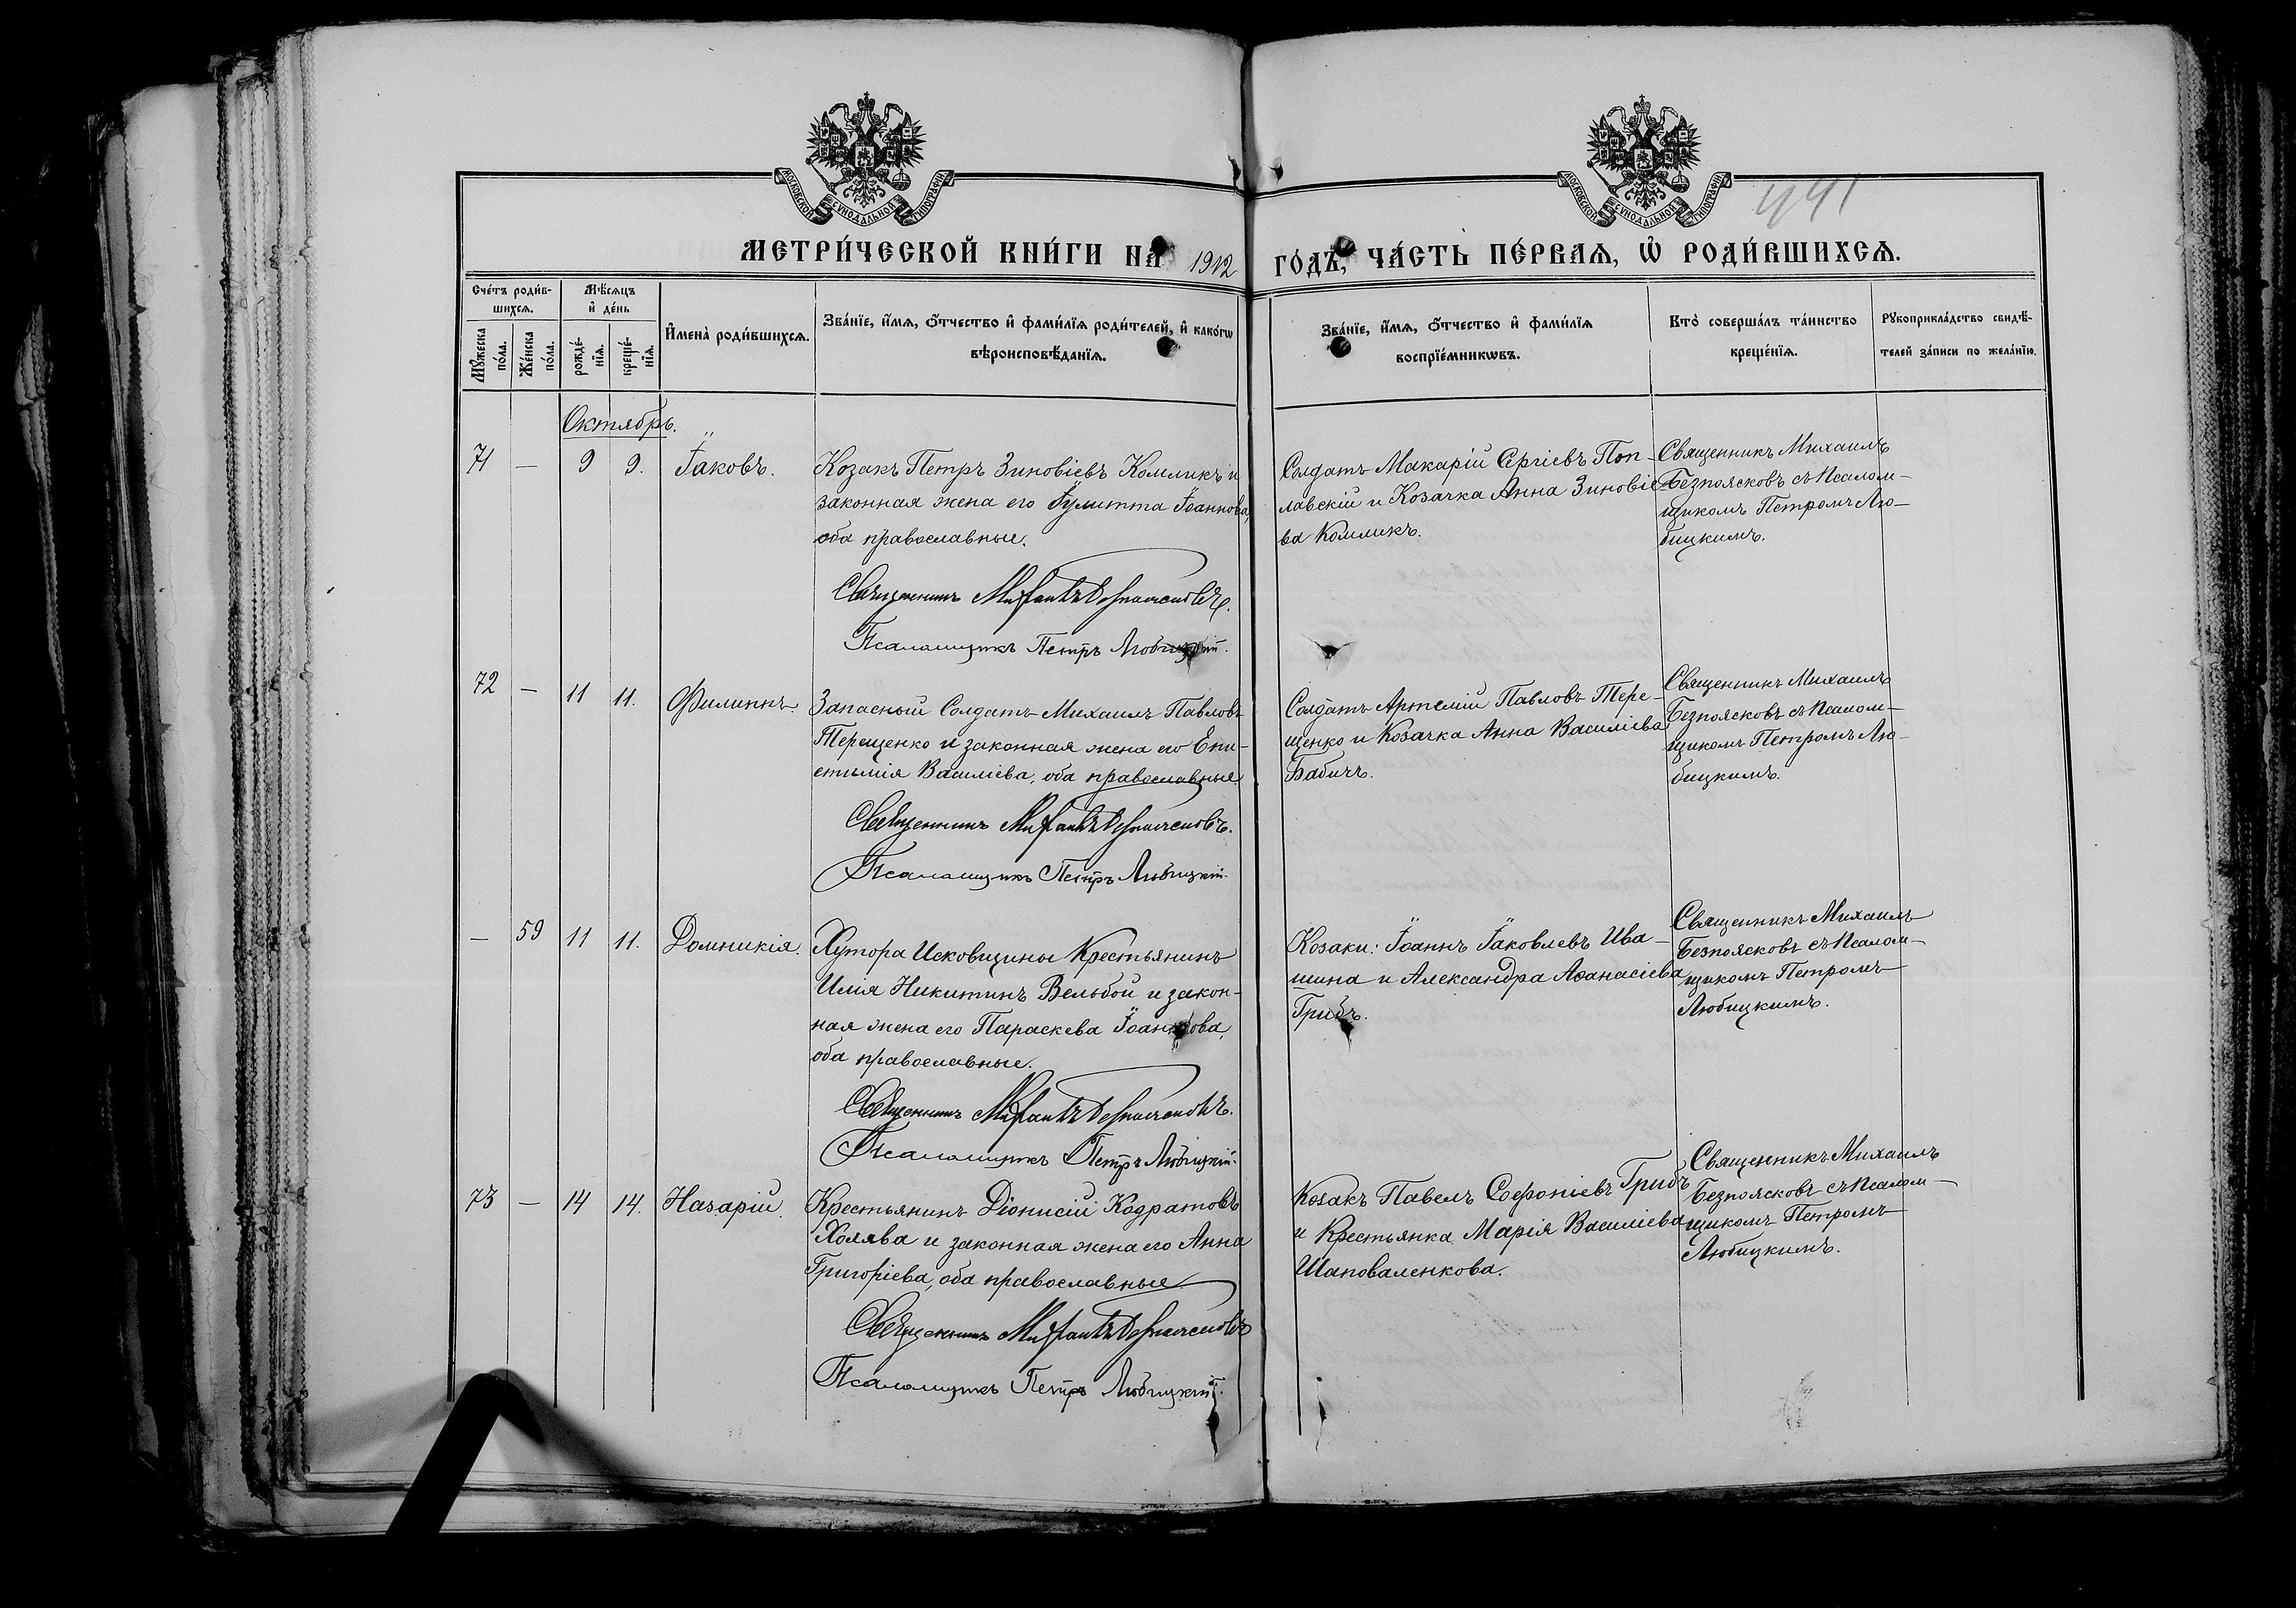 МОСКОВСКОЙ СѴНОДАЛЬНОЙ ТИПОГРАФІИ
МОСКОВСКОЙ СѴНОДАЛЬНОЙ ТИПОГРАФІИ
441
МЕТРИ́ЧЕСКОЙ КНИ́ГИ НА 1912 ГО́ДЪ, ЧА́СТЬ ПЕ́РВАѦ, Ѡ҆ РОДИ́ВШИХСѦ.
Сче́тъ роди́в-
шихсѧ.
Мꙋ́жеска по́ла.
Же́нска по́ла.
Мѣ́сѧцъ
и҆ де́нь
рожде́-
нїѧ.
креще́-
нїѧ.
И҆мена̀ роди́вшихсѧ.
Зва́нїе, и҆́мѧ, ѻ҆́тчество и҆ фами́лїѧ роди́телей, и҆ како́гѡ
вѣроисповѣ́данїѧ.
Зва́нїе, и҆́мѧ, ѻ҆́тчество и҆ фами́лїѧ
воспрїе́мникѡвъ.
Кто̀ соверша́лъ та́инство
креще́нїѧ.
Рꙋкоприкла́дство свидѣ́-
телей за́писи по жела́нїю.
Октябрь.
71 — 9 9. Їаковъ.
Козакъ Петръ Зиновіевъ Комликъ и
законная жена его Їулитта Їоаннова,
оба православные.
Священникъ Михаилъ Безпоясковъ.
Псаломщикъ Петръ Любицкій.
Солдатъ Макарій Сергіевъ Поп-
лавскій и Козачка Анна Зиновіе-
ва Комликъ.
Священникъ Михаилъ
Безпоясковъ съ Псалом-
щикомъ Петромъ Лю-
бицкимъ.
72 — 11 11. Филиппъ.
Запасный Солдатъ Михаилъ Павловъ
Терещенко и законная жена его Епи-
стимія Василіева, оба православные.
Священникъ Михаилъ Безпоясковъ.
Псаломщикъ Петръ Любицкій.
Солдатъ Артемій Павловъ Тере-
щенко и Козачка Анна Василіева
Бабичъ.
Священникъ Михаилъ
Безпоясковъ съ Псалом-
щикомъ Петромъ Лю-
бицкимъ.
— 59 11 11. Домникія.
Хутора Исковщины Крестьянинъ
Илія Никитинъ Вельбой и закон-
ная жена его Параскева Їоаннова,
оба православные.
Священникъ Михаилъ Безпоясковъ.
Псаломщикъ Петръ Любицкій.
Козаки: Їоаннъ Їаковлевъ Ива-
шина и Александра Аѳанасіева
Грибъ.
Священникъ Михаилъ
Безпоясковъ съ Псалом-
щикомъ Петромъ
Любицкимъ.
73 — 14 14. Назарій.
Крестьянинъ Діонисій Кодратовъ
Холява и законная жена его Анна
Григоріева, оба православные.
Священникъ Михаилъ Безпоясковъ
Псаломщикъ Петръ Любицкій.
Козакъ Павелъ Софоніевъ Грибъ
и Крестьянка Марія Василіева
Шаповаленкова.
Священникъ Михаилъ
Безпоясковъ съ Псалом-
щикомъ Петромъ
Любицкимъ.